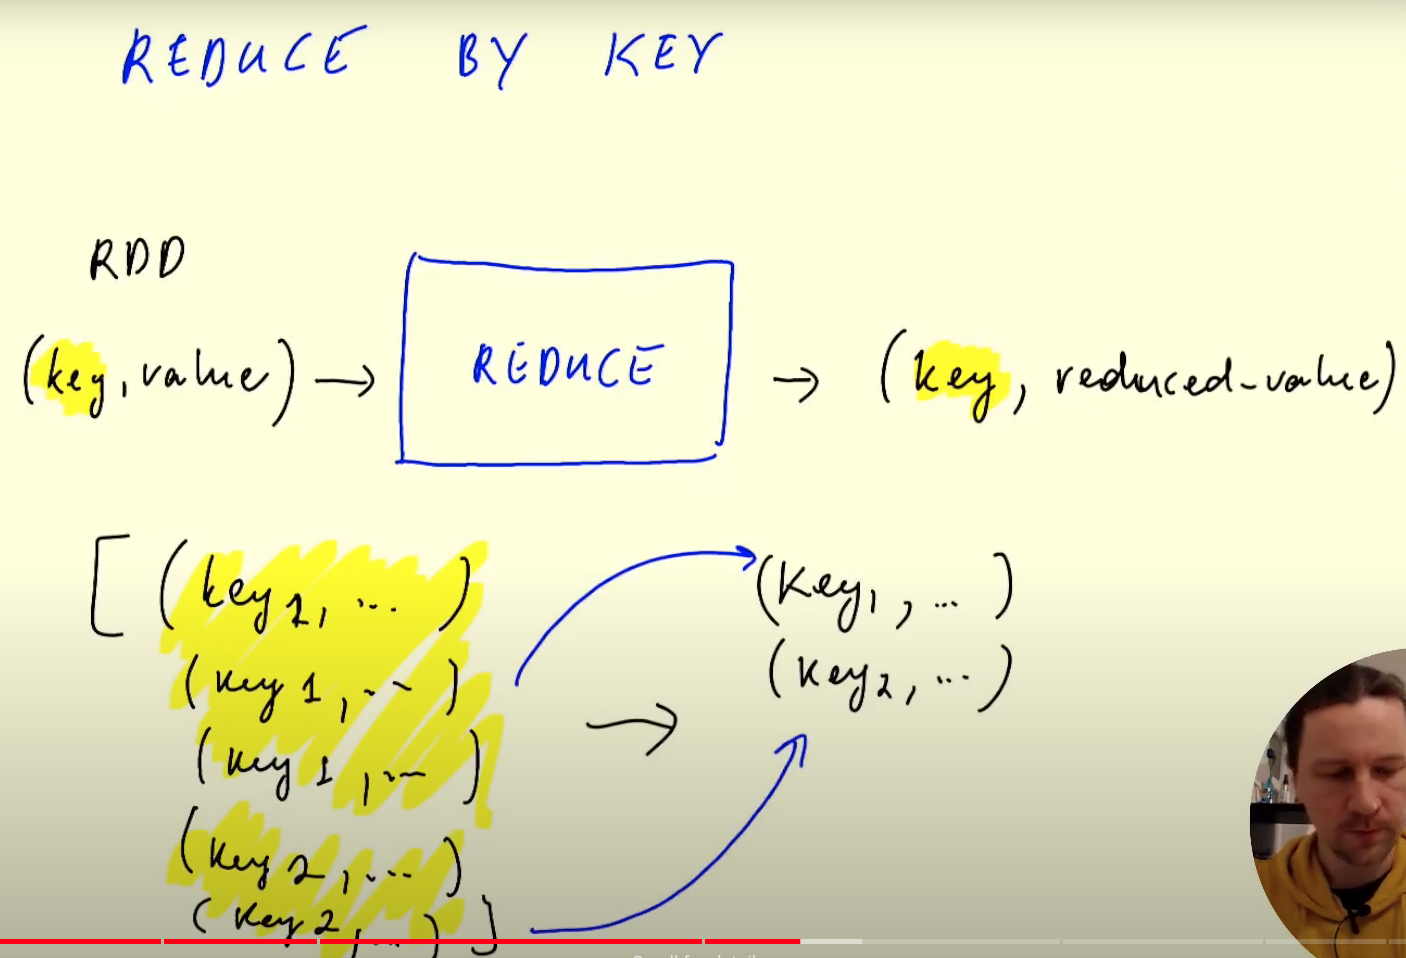 REDUCE BY KEY
RDD
(key, value) → REDUCE → (key, reduced-value)
[ (key 1, ...)
(key 1, ...)
(key 1, ...)
(key 2, ...)
(key 2, ...) ]
→
(key1, ...)
(key2, ...)